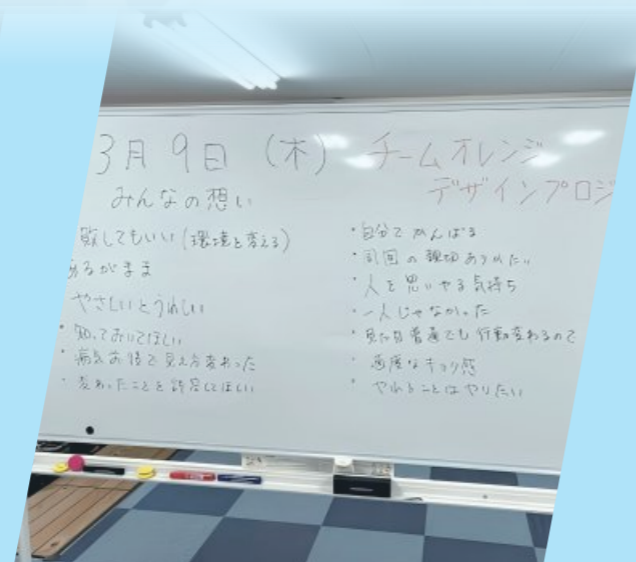 3月9日(木) チームオレンジ
デザインプロジ
みんなの想い
敗してもいい(環境を変える)
あるがまま
やさしいとうれしい
・知っておいてほしい
・病気お陰で見え方変わった
・変わったことを許容してほしい
・自分でがんばる
・周囲の親切ありがたい
・人を思いやる気持ち
・一人じゃなかった
・見た目普通でも行動変わるので
適度なキョリ感
・やれることはやりたい